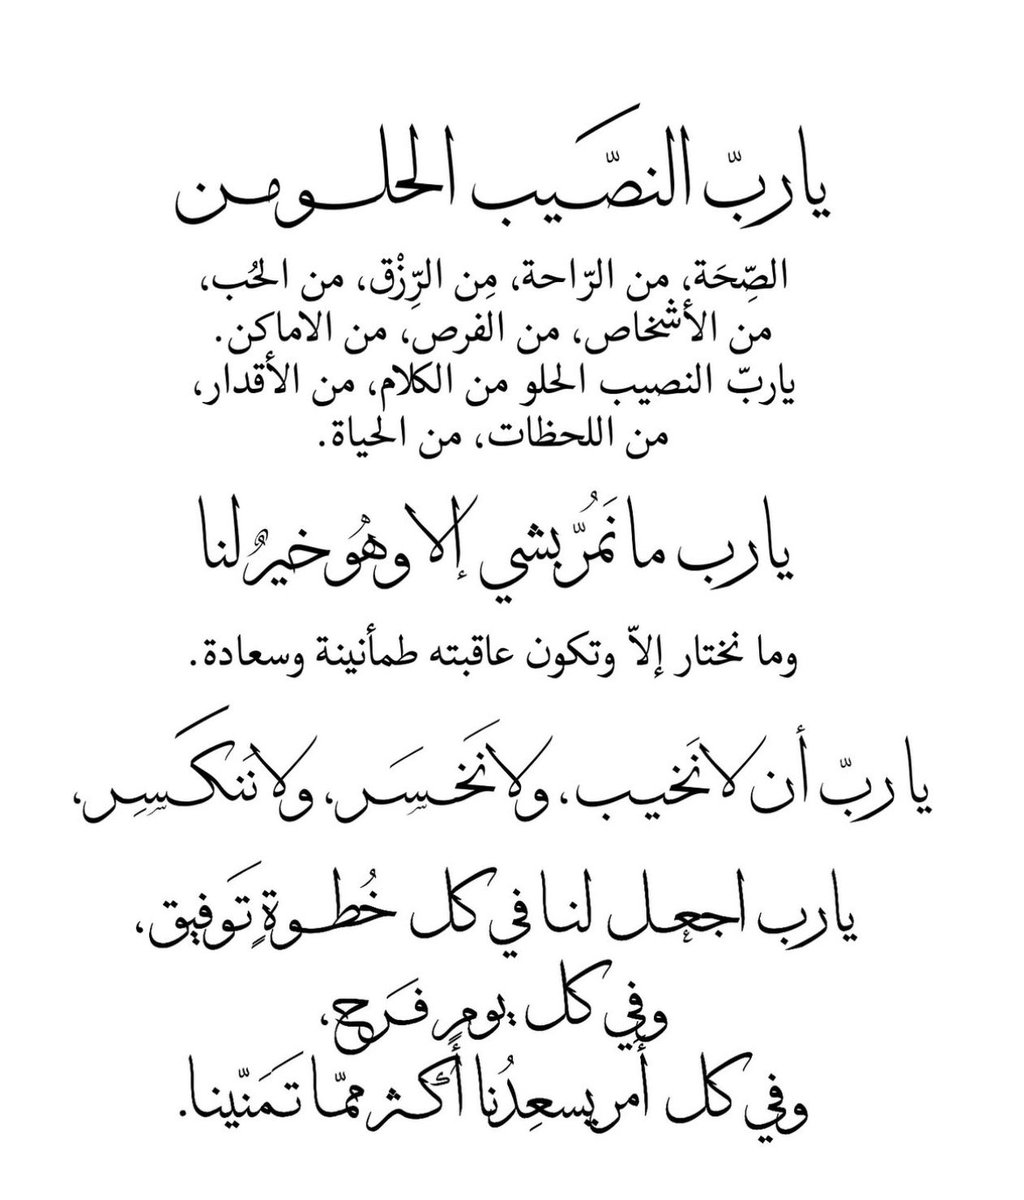 ياربّ النصَّيب الحلو من
الصِّحَة، من الرّاحة، مِن الرِّزْق، من الحُب،
من الأشخاص، من الفرص، من الاماكن.
ياربّ النصيب الحلو من الكلام، من الأقدار،
من اللحظات، من الحياة.
يارب ما نَمُرّ بشي إلا وهُو خيرٌ لنا
وما نختار إلاّ وتكون عاقبته طمأنينة وسعادة.
ياربّ أن لا نَخيب، ولا نَخسَر، ولا نَنكَسِر،
يارب اجعل لنا في كل خُطوةٍ تَوفيق،
وفي كل يومٍ فَرَح،
وفي كل أمر يسعِدُنا أكثر ممّا تَمَنّينا.